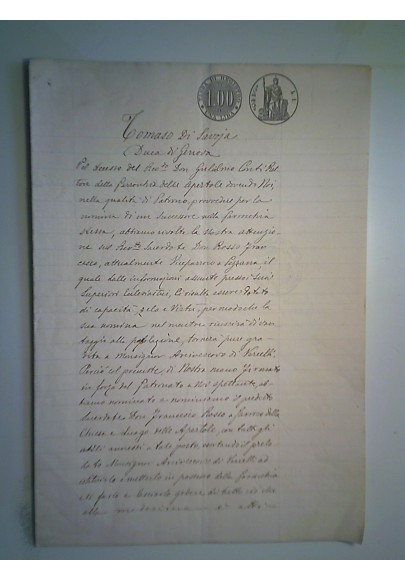 1.00
Tomaso Di Savoja
Duca di Genova
Pel decesso del Rev.do Don Guglielmo Conti Ret-
tore della Parrocchia delle Apertole dovendo Noi,
nella qualità di Patrono, provvedere per la
nomina di un successore nella parrocchia
stessa, abbiamo rivolto la Nostra attenzio-
ne sul Rev.do Sacerdote Don Rosso Fran-
cesco, attualmente Viceparroco a Pezzana, il
quale dalle informazioni assunte presso i suoi
Superiori Ecclesiastici, Ci risulta essere dotato
di capacità, zelo e virtù, per modo che la
sua nomina nel mentre riuscirà di van-
taggio alla popolazione, tornerà pure gra-
dita a Monsignor Arcivescovo di Vercelli.
Perciò col presente di Nostra mano firmato
in forza del Patronato a Noi spettante, ab-
biamo nominato e nominiamo il predetto
Sacerdote Don Francesco Rosso a Parroco della
Chiesa e luogo delle Apertole, con tutti gli
utili annessi a tale posto, 
Monsignor Arcivescovo di Vercelli ad
e metterlo in possesso della Parrocchia
e di farlo e lasciarlo godere di tutto ciò che
alla medesima è